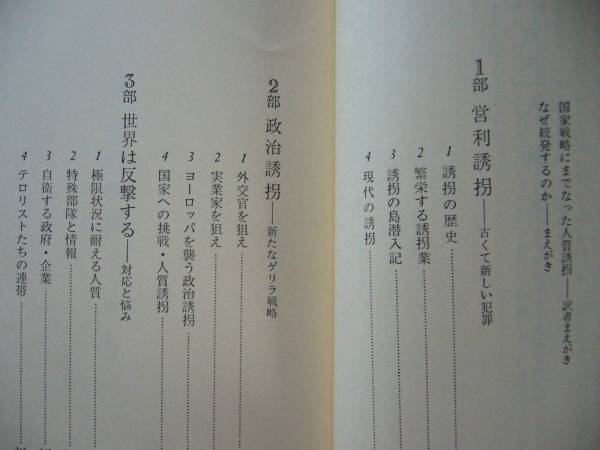 国家戦略にまでなった人質誘拐——訳者まえがき
なぜ続発するのか——まえがき
1部 営利誘拐——古くて新しい犯罪
1 誘拐の歴史
2 繁栄する誘拐業
3 誘拐の島潜入記
4 現代の誘拐
2部 政治誘拐——新たなゲリラ戦略
1 外交官を狙え
2 実業家を狙え
3 ヨーロッパを襲う政治誘拐
4 国家への挑戦・人質誘拐
3部 世界は反撃する——対応と悩み
1 極限状況に耐える人質
2 特殊部隊と情報
3 自衛する政府・企業
4 テロリストたちの連帯